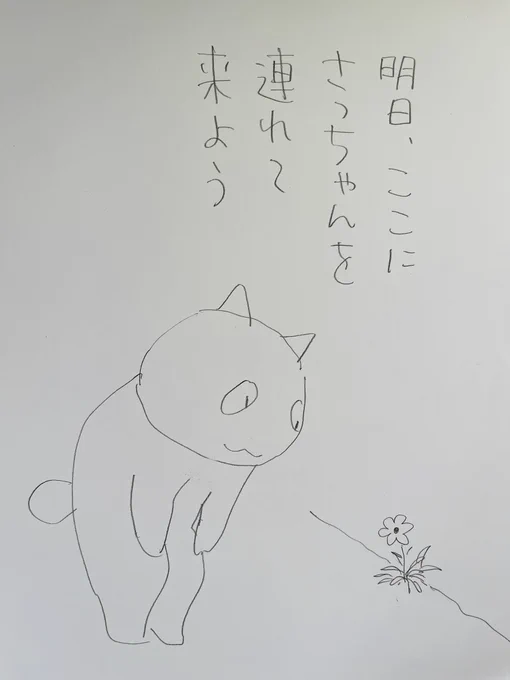 明日、ここに
さっちゃんを
連れて
来よう